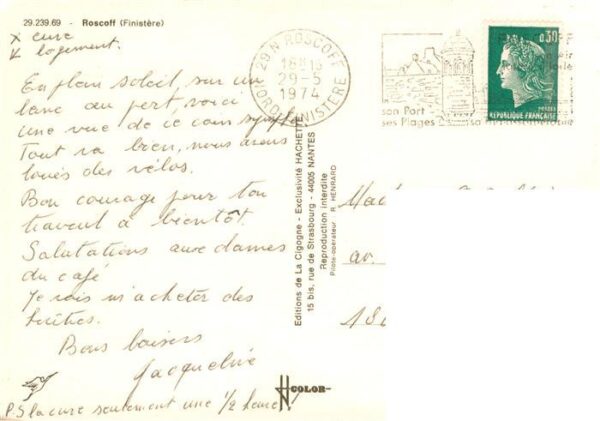 29.239.69 - Roscoff (Finistère)
x cure
x logement.
En plein soleil, sur un
banc au port, voici
une vue de ce coin sympa
Tout va bien, nous avons
loués des vélos.
Bon courage pour ton
travail à bientôt.
Salutations aux dames
du café
Je vais m'acheter des
huîtres.
Bons baisers
Jacqueline
P.S la cure seulement une 1/2 heure
Editions de La Cigogne - Exclusivité HACHETTE
15 bis, rue de Strasbourg - 44005 NANTES
Reproduction interdite
Pilote-opérateur R. HENRARD
COLOR
29 N ROSCOFF
18H15
29-5
1974
NORD FINISTERE
son Port
ses Plages
0,30
REPUBLIQUE FRANÇAISE
av.